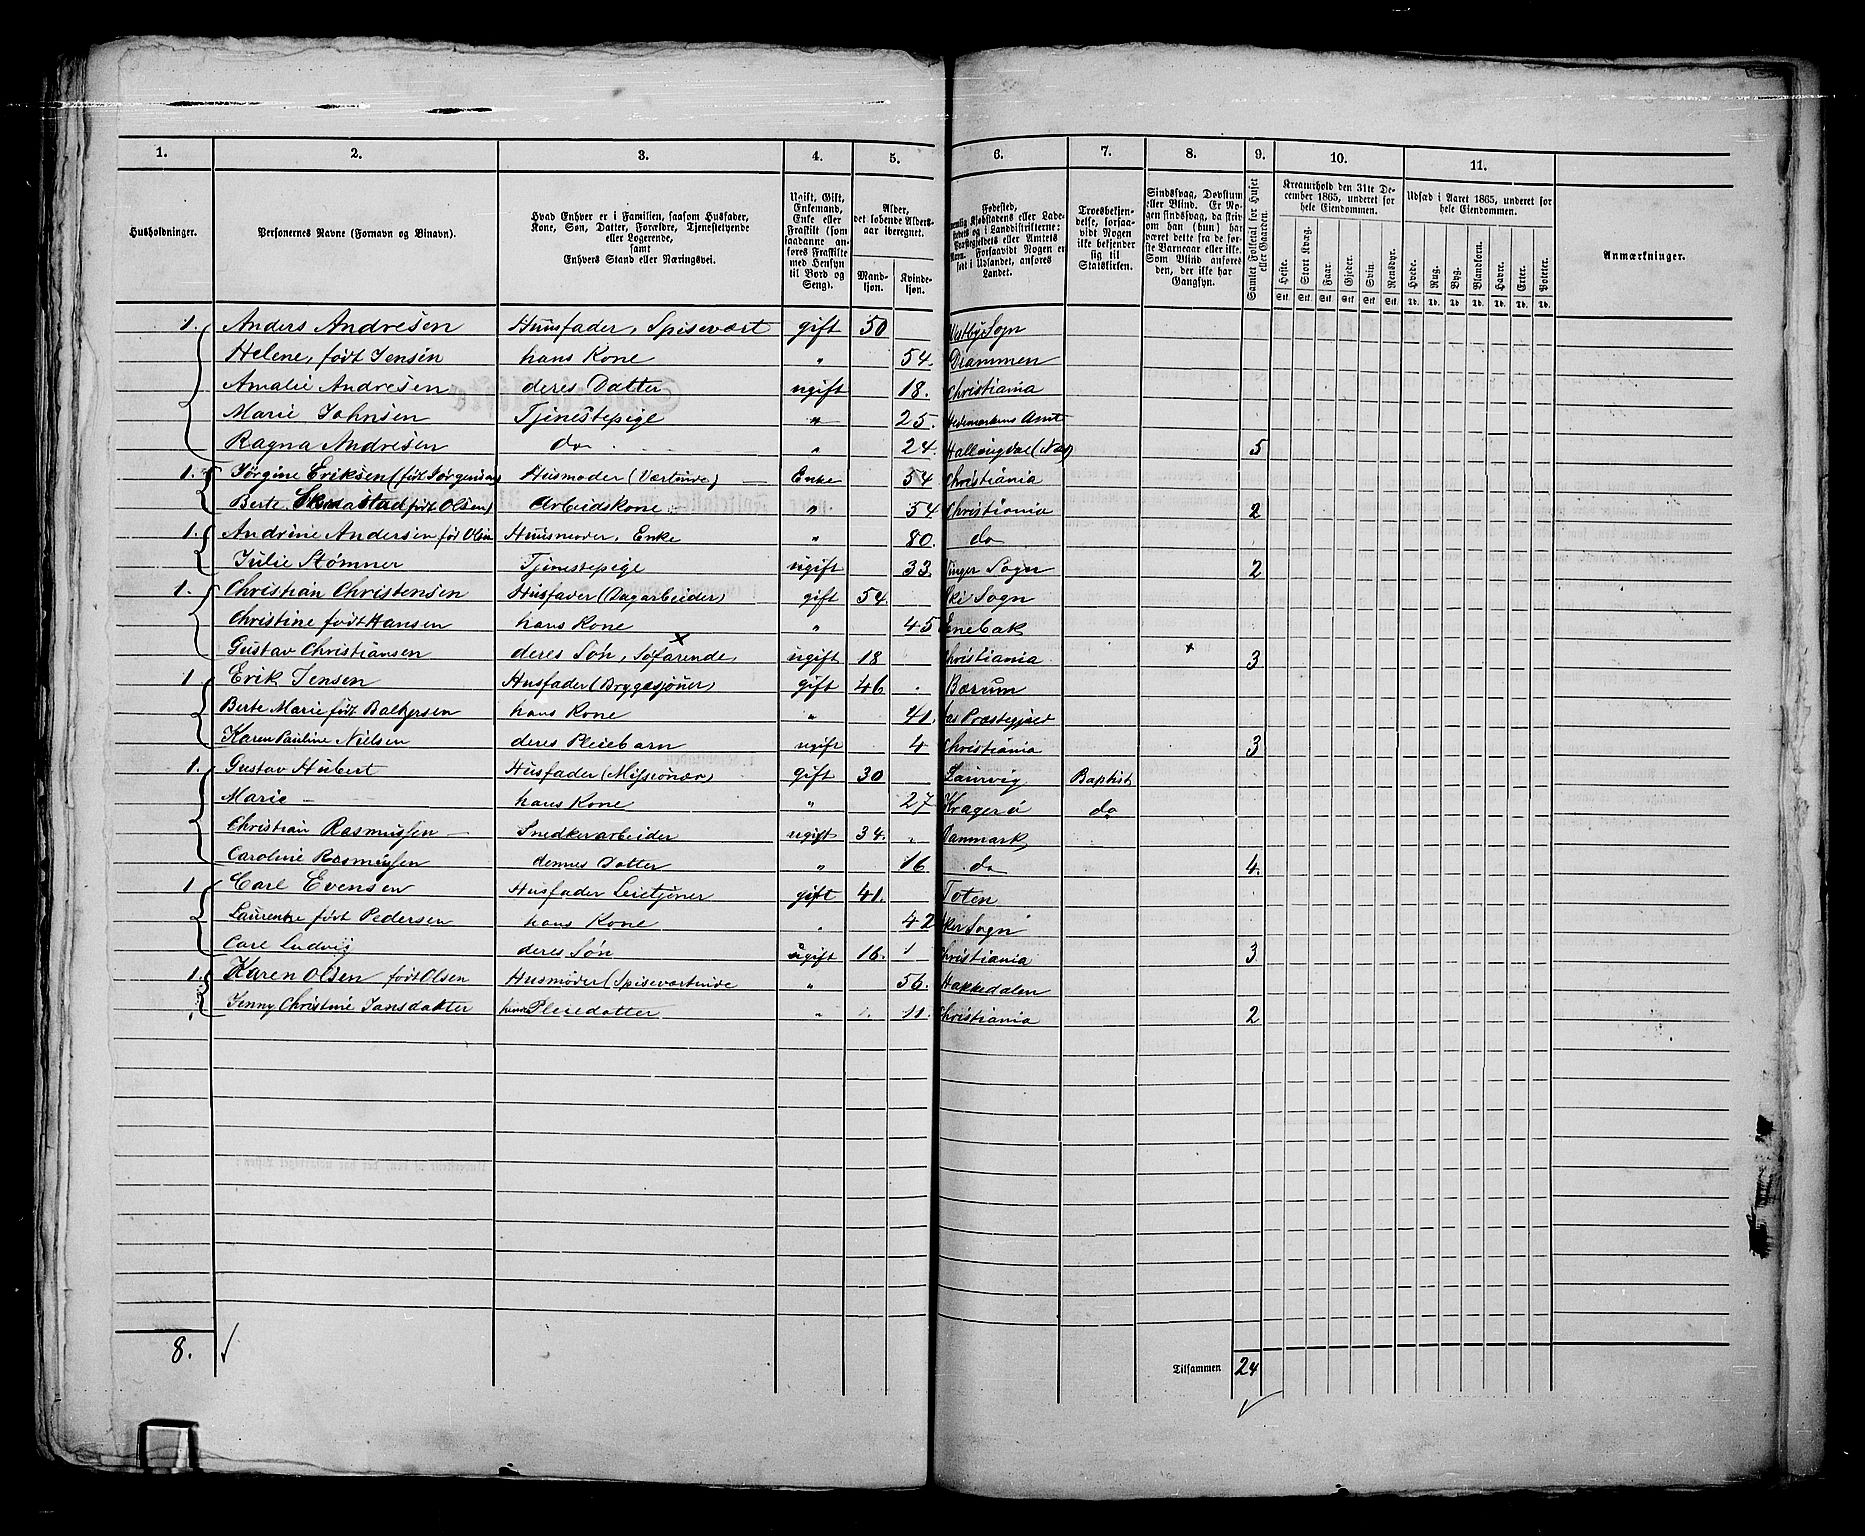 1. 2. 3. 4. 5. 6. 7. 8. 9. 10. 11.
Husholdninger. Personernes Navne (Fornavn og Binavn). Hvad Enhver er i Familien, saasom Husfader, Kone, Søn, Datter, Forældre, Tjenestetyende eller Logerende, samt Enhvers Stand eller Næringsvei. Ugift, Gift, Enkemand, Enke eller Fraskilt (som saadanne anføres Fraskilte med Hensyn til Bord og Seng). Alder, det løbende Aldersaar iberegnet. Mandkjøn. Kvindekjøn. Fødested, nemlig Kjøbstadens eller Ladestedets og i Landdistrikterne: Præstegjeldets eller Amtets Navn. Forsaavidt Nogen er født i Udlandet, anføres Landet. Troesbekjendelse, forsaavidt Nogen ikke bekjender sig til Statskirken. Sindssvag, Døvstum eller Blind. Er Nogen sindssvag, da skrives, om han (hun) har været dette fra de første Barneaar eller ikke. Som Blind anføres den, der ikke har Gangsyn. Samlet Folketal for Huset eller Gaarden. Kreaturhold den 31te December 1865, undertet for hele Eiendommen. Udsæd i Aaret 1865, undertet for hele Eiendommen. Anmærkninger.
Heste. Stort Kvæg. Faar. Gjeder. Svin. Rensdyr. Hvede. Rug. Byg. Blandkorn. Havre. Erter. Poteter.
Stk. Stk. Stk. Stk. Stk. Stk. Td. Td. Td. Td. Td. Td. Td.
1. Anders Andresen Huusfader, Spisevært gift 50 Vestby Sogn
Helene, født Jensen hans Kone " 54. Drammen
Amalie Andresen deres Datter ugift 18. Christiania
Marie Johnsen Tjenestepige " 25. Hedemarkens Amt
Ragna Andresen do " 24. Hallingdal (Næs) 5
1. Jørgine Eriksen (født Jørgensen) Husmoder (Værtinde) Enke 54 Christiania
Berte Skrastad født Olsen) Arbeidskone " 54 Christiania 2
1. Andrine Andersen fød Olsen Huusmoder, Enke " 80. do
Julie Stømner Tjenestepige ugift 33. Sogn 2
1. Christian Christensen Husfader (Dagarbeider) gift 54. Ski Sogn
Christine født Hansen hans Kone " 45 Enebak
Gustav Christiansen deres Søn, Søfarende x ugift 18 Christiania x 3
1 Erik Jensen Husfader (Bryggesjouer) gift 46 Bærum
Berte Marie født Balkersen hans Kone " 41. Aas Præstegjeld
Karen Pauline Nielsen deres Pleiebarn ugift 4 Christiania 3
1. Gustav Hubert Husfader (Missionær) gift 30 Laurvig Baptist
Marie — hans Kone " 27 Kragerø do
Christian Rasmussen — Snedkerarbeider ugift 34. Danmark
Caroline Rasmussen dennes Datter " 16 do 4.
1 Carl Evensen Husfader Leietjener gift 41. Toten
Laurentze født Pedersen hans Kone " 42 Aker Sogn
Carl Ludvig deres Søn ugift 16. Christiania 3
1. Karen Olsen født Olsen Husmoder (Spiseværtinde " 56. Hakkedalen
Jenny Christine Jansdatter hendes Pleiedatter " 11. Christiania 2
8. √ Tilsammen 24